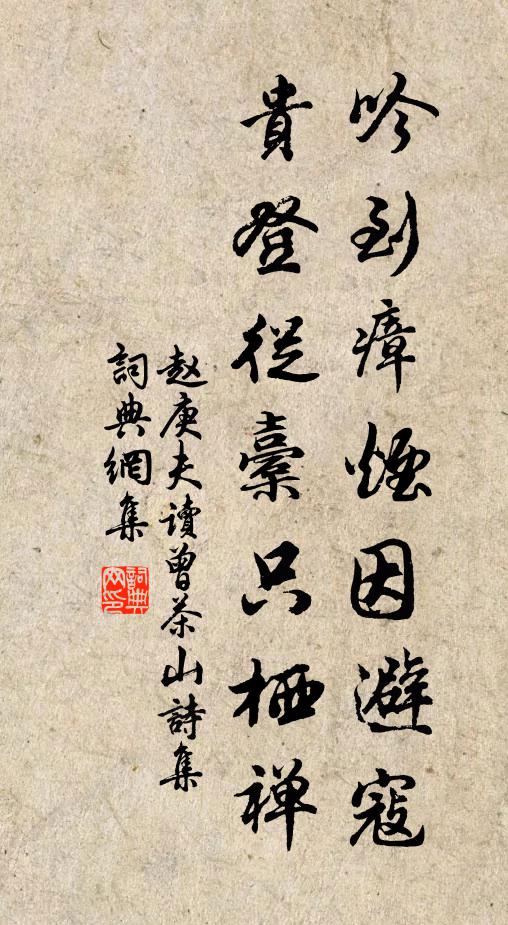 吟到瘴煙因避寇
貴登從橐只栖禅
赵庚夫读曾茶山詩集
詞典網集
詞典網印